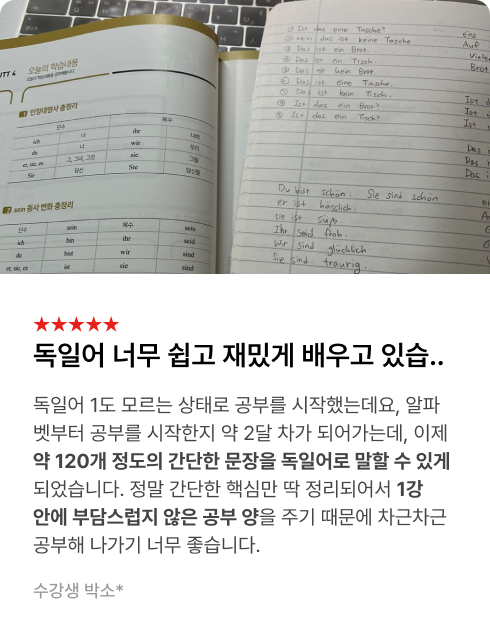 오늘의 학습내용
1 인칭대명사 총정리
단수 복수
ich 나 ihr 너희
du 너 wir 우리
er, sie, es 그, 그녀, 그것 sie 그들
Sie 당신 Sie 당신들
2 sein 동사 변화 총정리
단수 sein 복수 sein
ich bin ihr seid
du bist wir sind
er, sie, es ist sie sind
① Ist das eine Tasche?
② nein das ist keine Tasche
③ Das ist ein Brot.
④ Das ist ein Tisch.
⑤ Das ist kein Brot
⑥ Das ist eine Tasche.
⑦ Das ist kein Tisch.
⑧ Ist das ein Brot?
⑨ Ist das ein Tisch?
Auf
Brot
Ist
Ist
Das
Das
Du bist schön. Sie sind schön
er ist hässlich.
sie ist süß.
Ihr seid froh.
Wir sind glücklich
Sie sind traurig.
★★★★★
독일어 너무 쉽고 재밌게 배우고 있습..
독일어 1도 모르는 상태로 공부를 시작했는데요, 알파
벳부터 공부를 시작한지 약 2달 차가 되어가는데, 이제
약 120개 정도의 간단한 문장을 독일어로 말할 수 있게
되었습니다. 정말 간단한 핵심만 딱 정리되어서 1강
안에 부담스럽지 않은 공부 양을 주기 때문에 차근차근
공부해 나가기 너무 좋습니다.
수강생 박소*